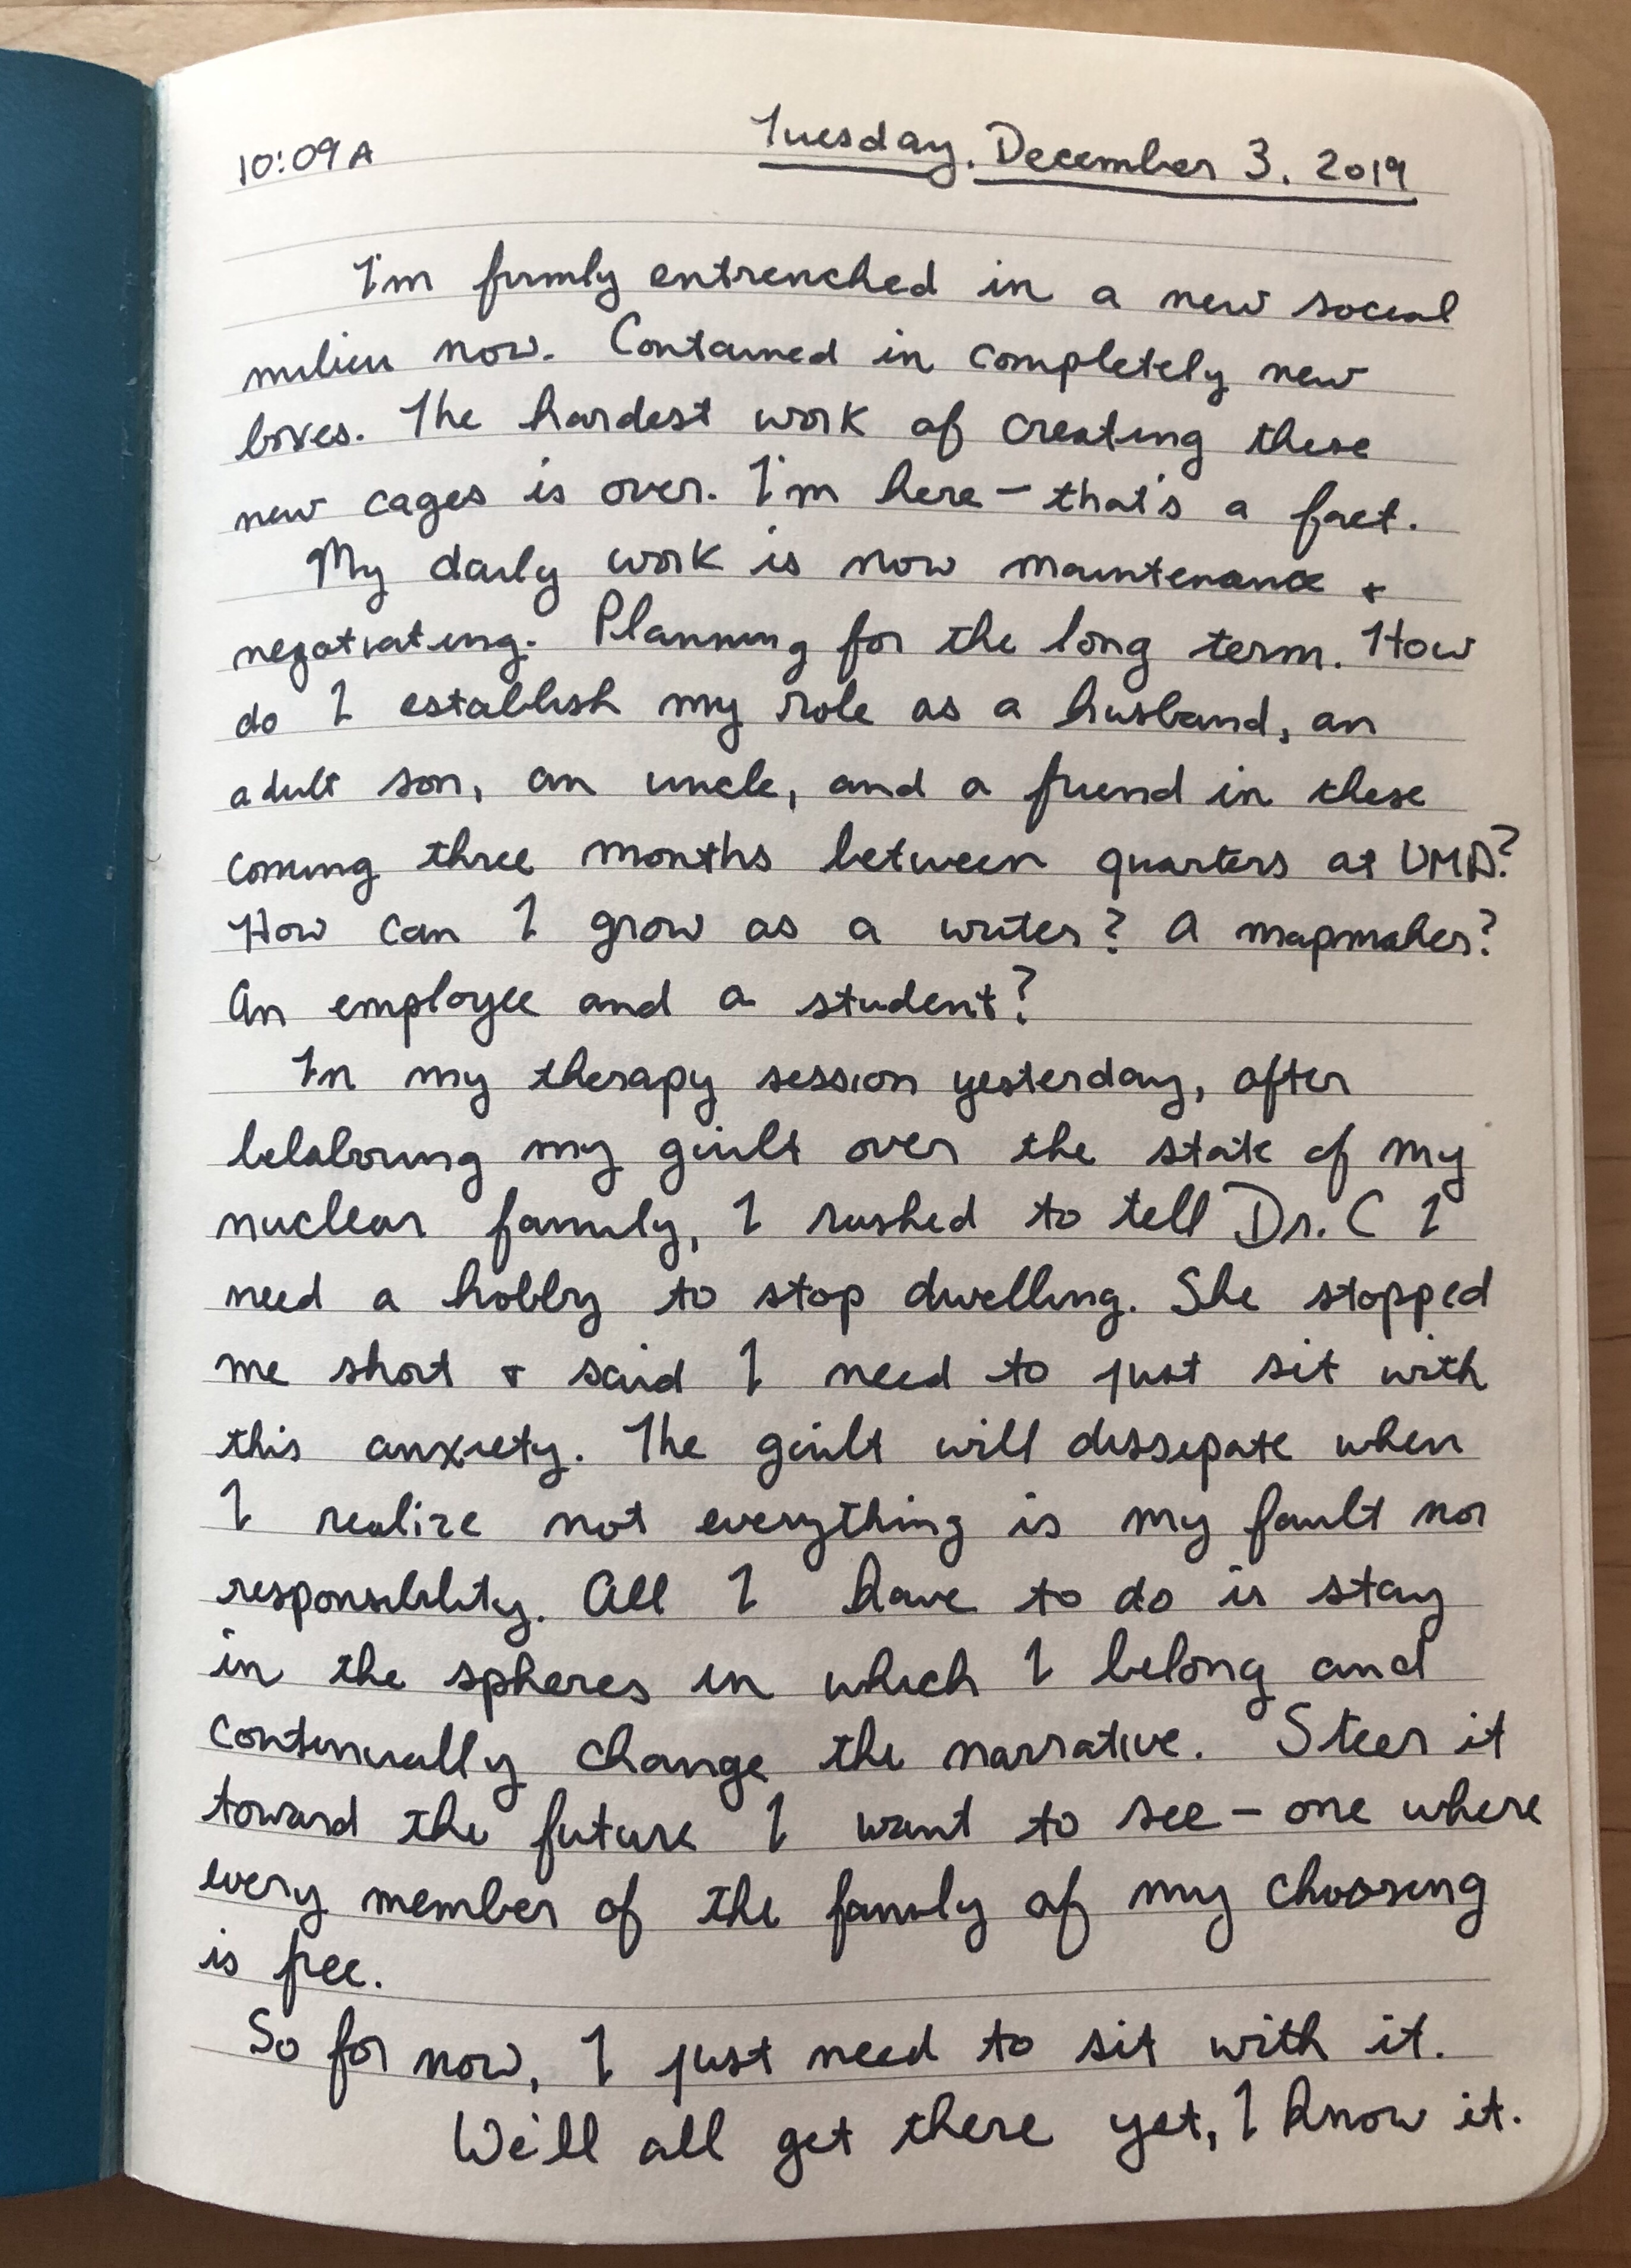 10:09A
Tuesday. December 3. 2019
I'm firmly entrenched in a new social
milieu now. Contained in completely new
boxes. The hardest work of creating these
new cages is over. I'm here – that's a fact.
My daily work is now maintenance +
negotiating. Planning for the long term. How
do I establish my role as a husband, an
adult son, an uncle, and a friend in these
coming three months between quarters at UMD?
How can I grow as a writer? A mapmaker?
An employee and a student?
In my therapy session yesterday, after
belabouring my guilt over the state of my
nuclear family, I rushed to tell Dr. C I
need a hobby to stop dwelling. She stopped
me short + said I need to just sit with
this anxiety. The guilt will dissipate when
I realize not everything is my fault nor
responsibility. All I have to do is stay
in the spheres in which I belong and
continually change the narrative. Steer it
toward the future I want to see – one where
every member of the family of my choosing
is free.
So for now, I just need to sit with it.
We'll all get there yet, I know it.